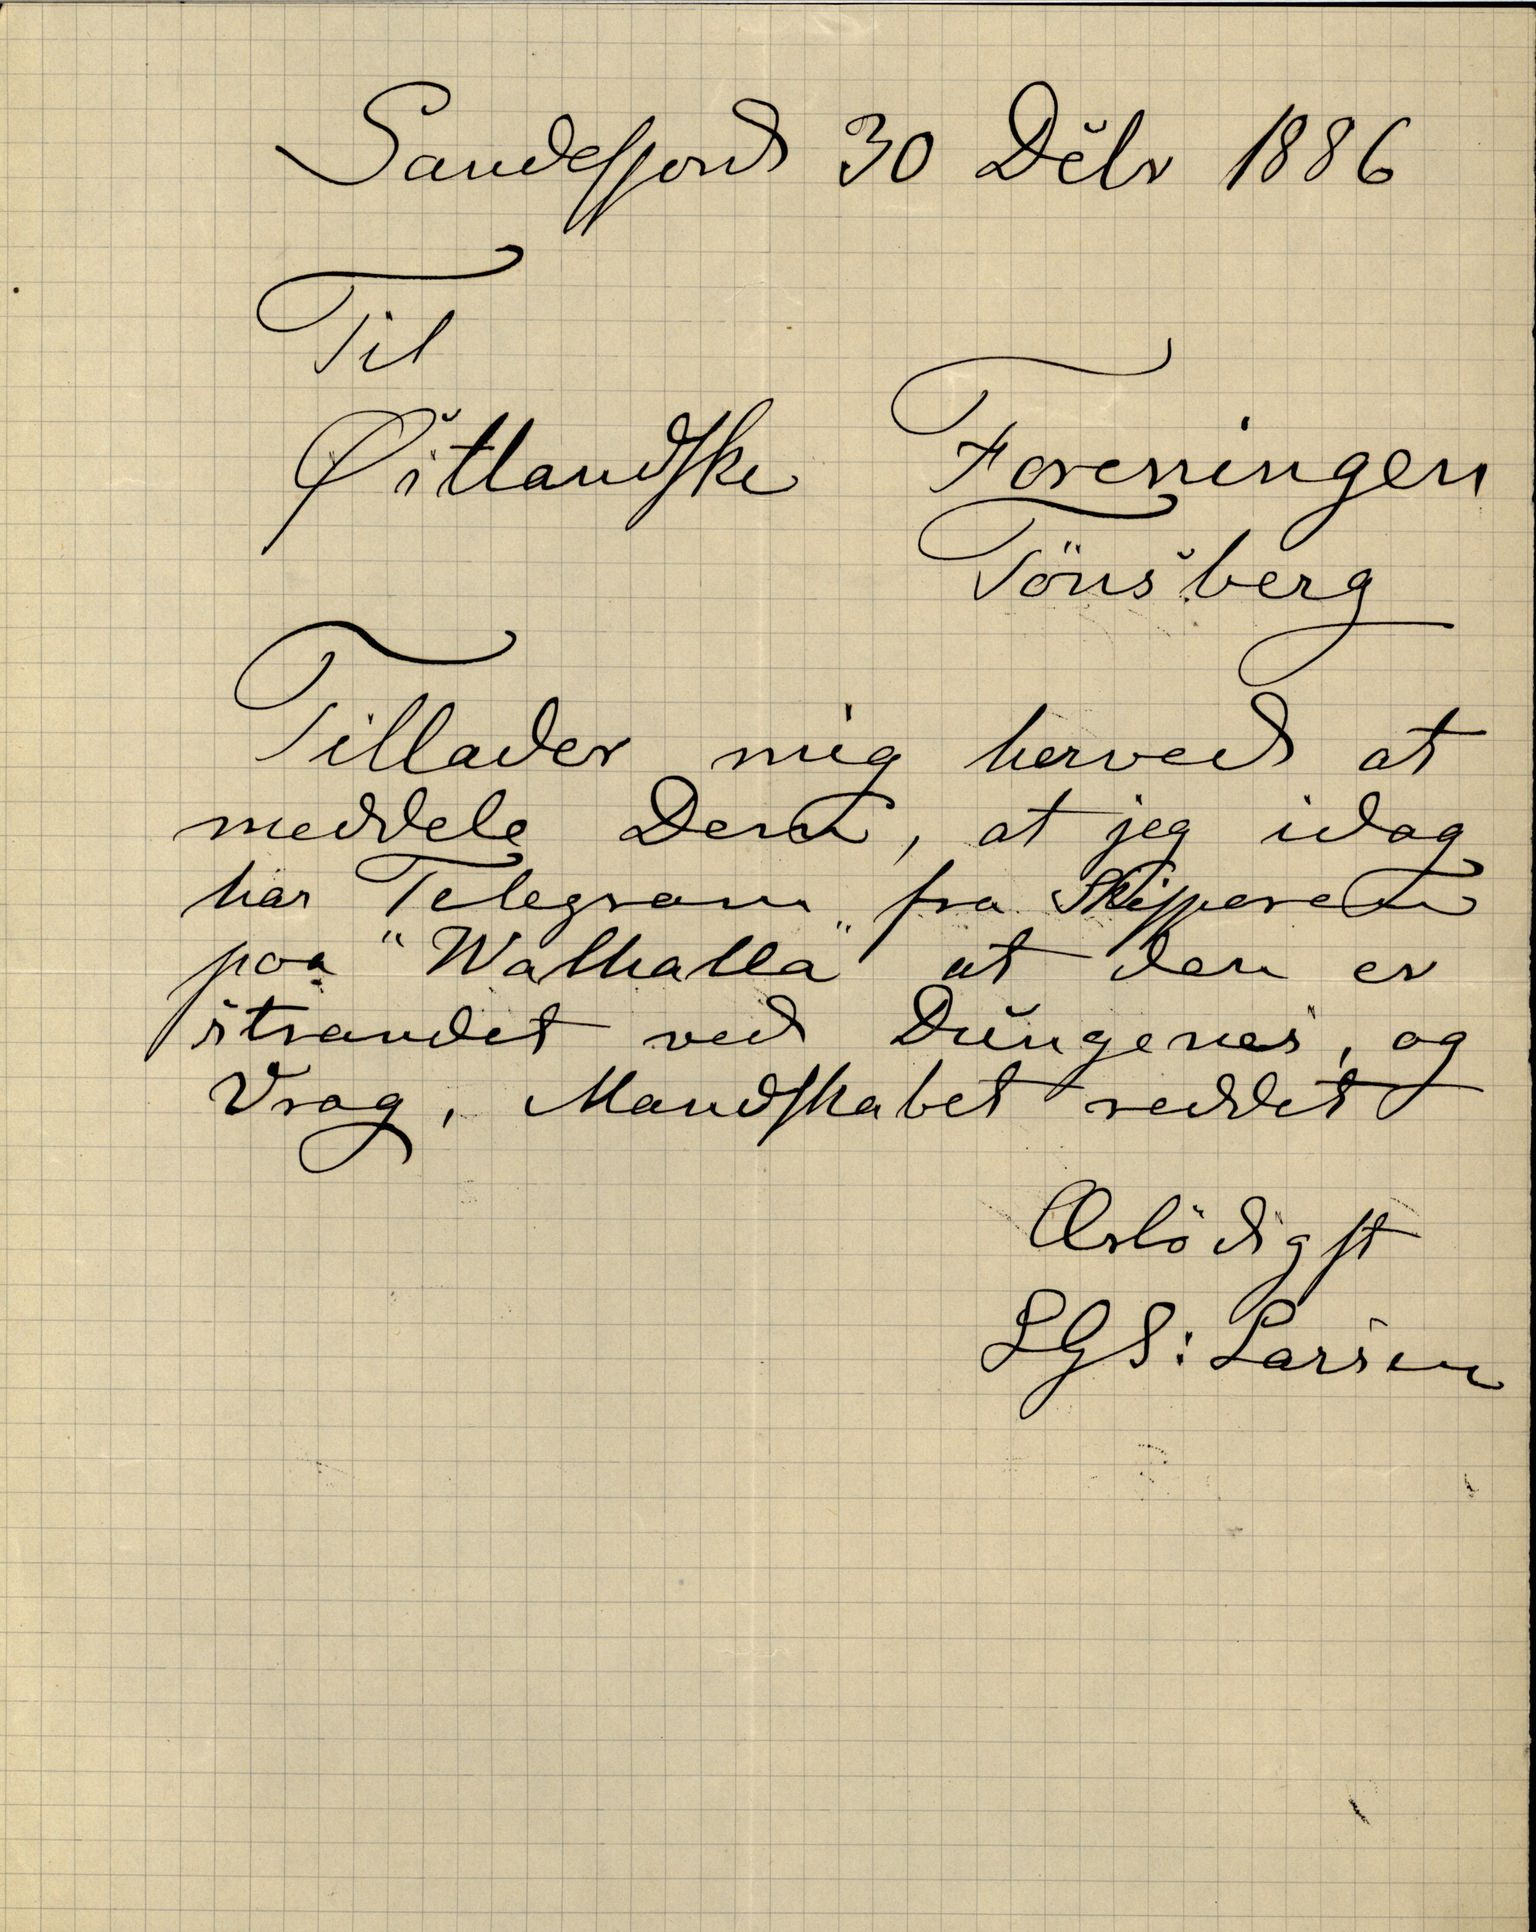 Sandefjord 30 Dcbr 1886
Til
Østlandske Foreningen
Tönsberg
Tillader mig herved at
meddele Dem, at jeg idag
har Telegram fra Skipperen
paa "Walhalla" at den er
strandet ved Dungenes, og
Vrag, Mandskabet reddet
Ærbödigst
LGS: Larsen